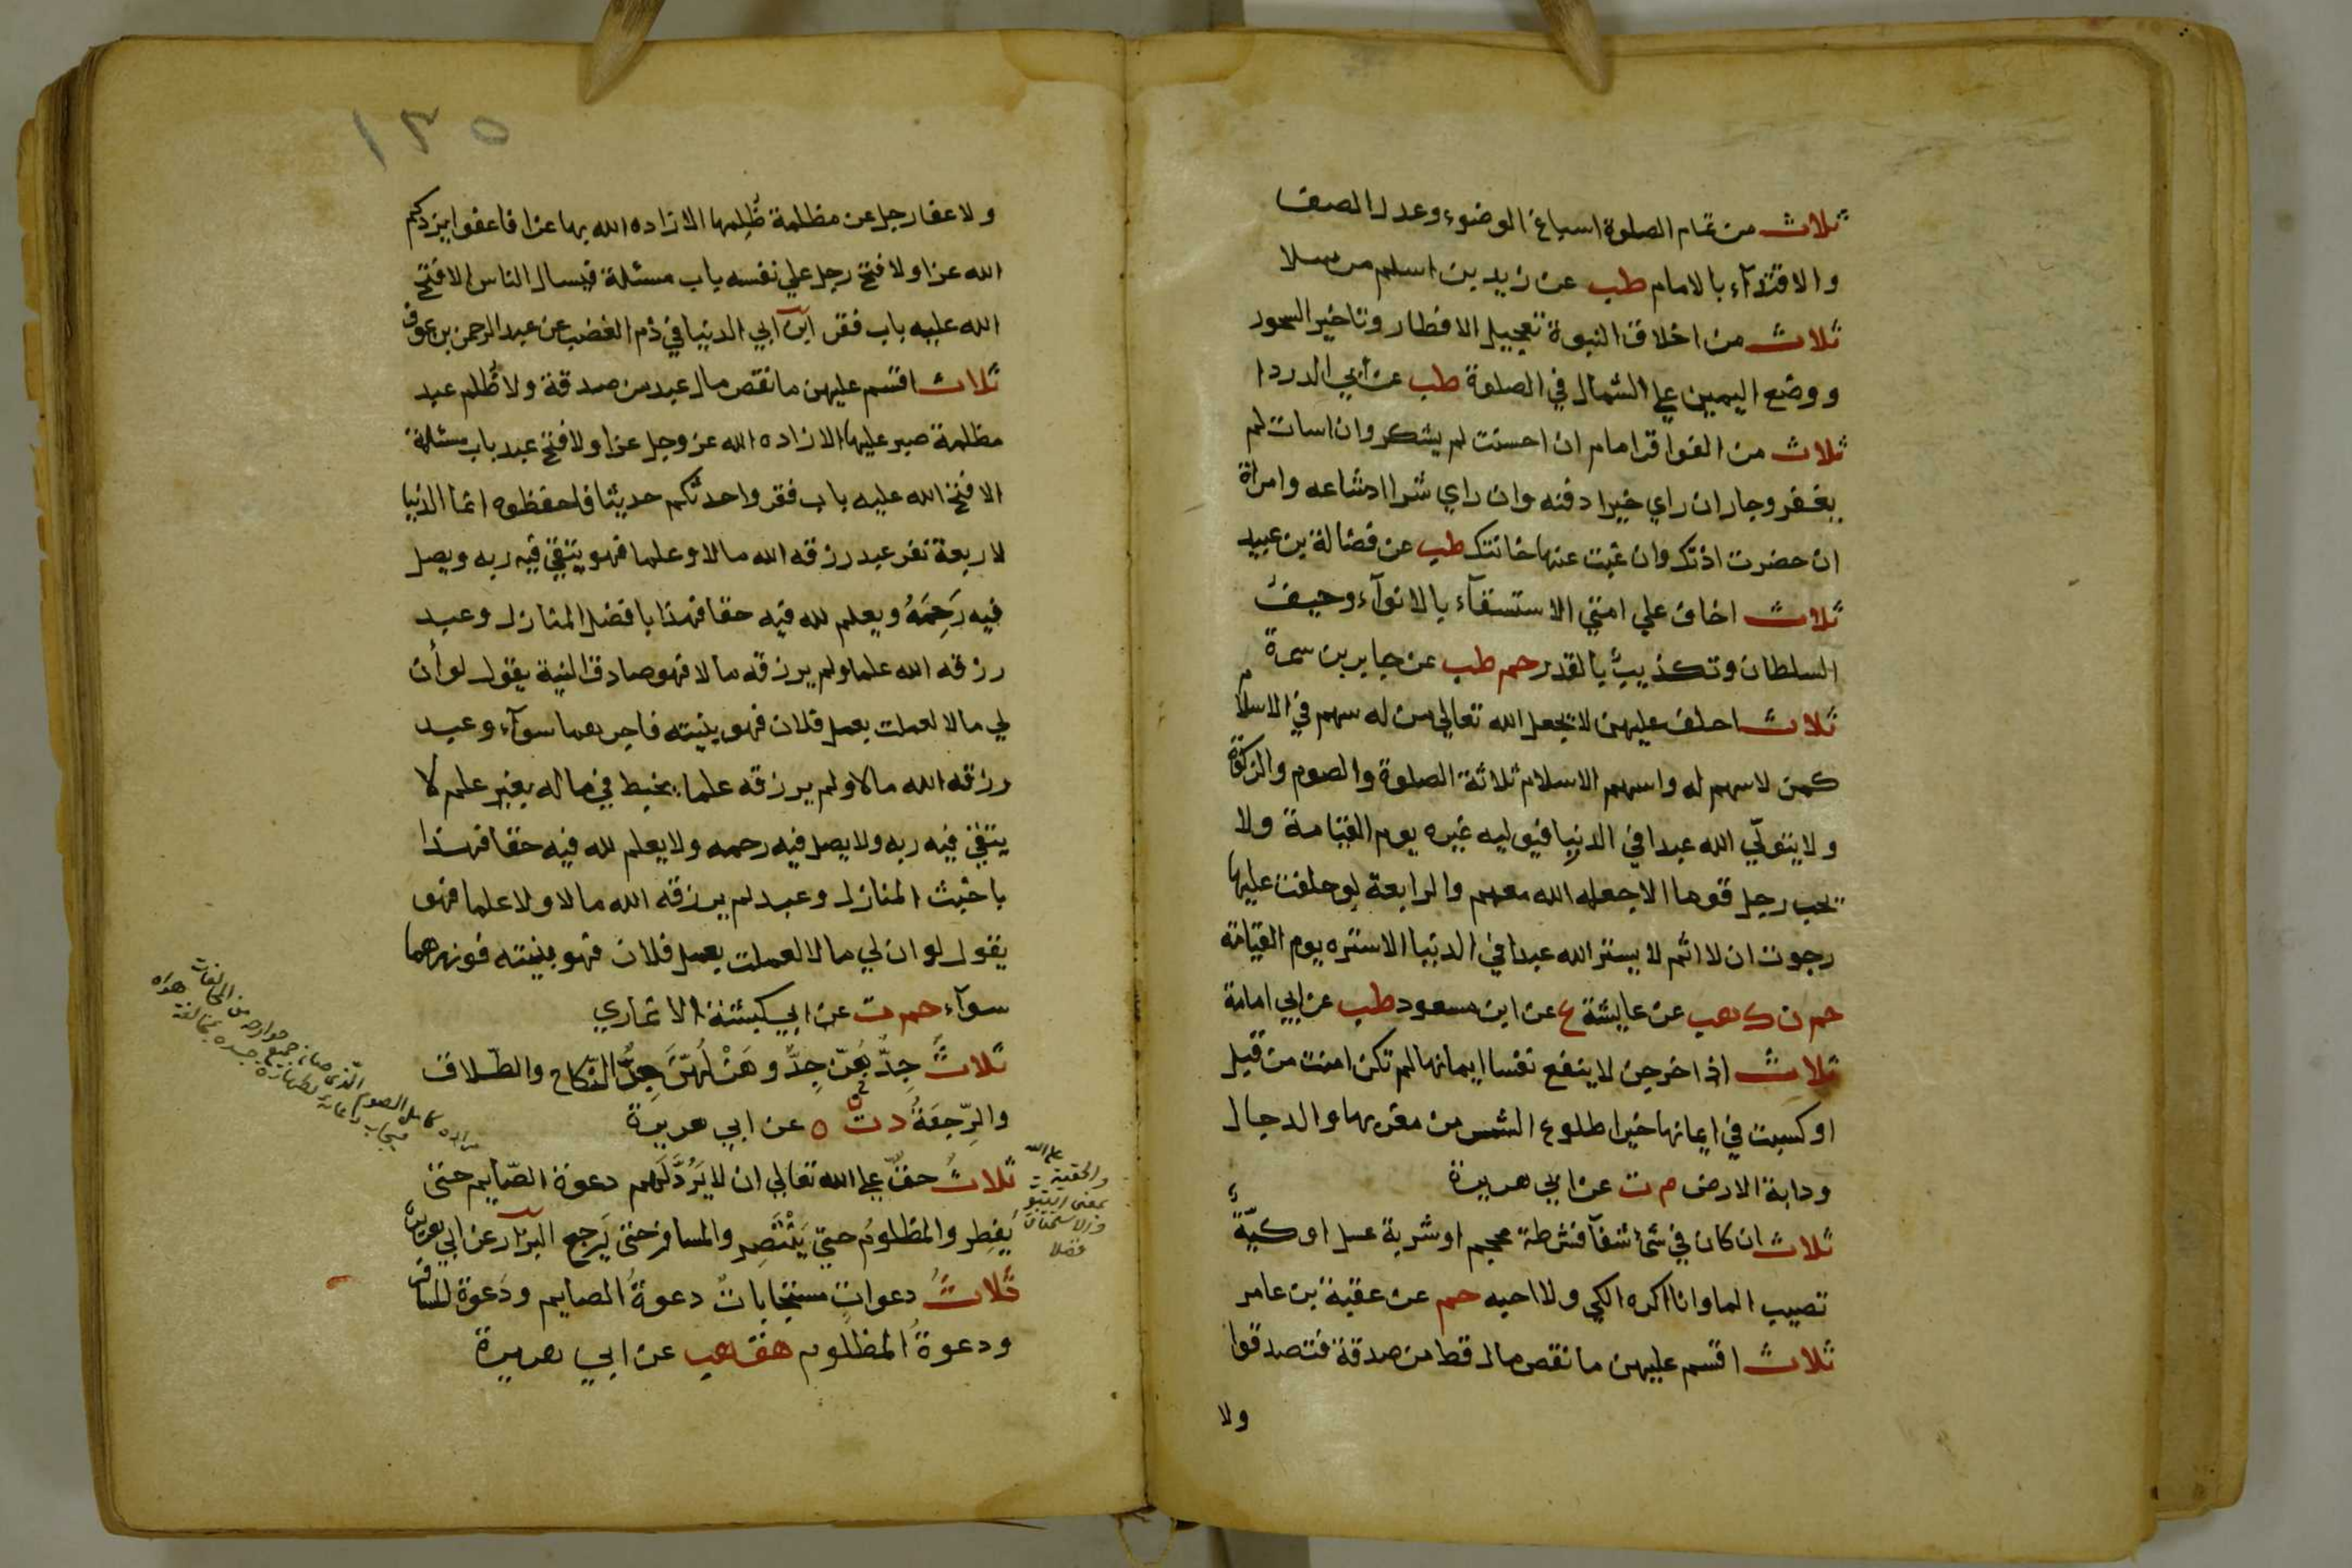 ثلاث من تمام الصلوة اسباغ الوضوء وعدل الصف
والاقتدآء بالامام طب عن زيد بن اسلم مرسلا
ثلاث من اخلاق النبوة تعجيل الافطار وتاخير السحور
ووضع اليمين علي الشمال في الصلوة طب عن أبي الدردا
ثلاث من الفواقر امام ان احسنت لم يشكر وان اسات لم
يغفر وجار ان راي خيرا دفنه وان راي شرا اشاعه وامراة
ان حضرت اذتك وان غبت عنها خانتك طب عن فضالة بن عبيد
ثلاث اخاف علي امتي الاستسقآء بالانوآء وحيف
السلطان وتكذيب بالقدر حم طب عن جابر بن سمرة
ثلاث احلف عليهن لا يجعل الله تعالي من له سهم في الاسلام
كمن لا سهم له واسهم الاسلام ثلاثة الصلوة والصوم والزكوة
ولا يتولي الله عبدا في الدنيا فيوليه غيره يوم القيامة ولا
يحب رجل قوما الا جعله الله معهم والرابعة لو حلفت عليها
رجوت ان لا اثم لا يستر الله عبدا في الدنيا الا ستره يوم القيامة
حم ن ك هب عن عايشة ع عن ابن مسعود طب عن ابي امامة
ثلاث اذا خرجن لا ينفع نفسا ايمانها لم تكن امنت من قبل
او كسبت في ايمانها خيرا طلوع الشمس من مغربها والدجال
ودابة الارض م ت عن ابي هريرة
ثلاث ان كان في شئ شفآ فشرطة محجم او شربة عسل او كيّة
تصيب الما وانا اكره الكي ولا احبه حم عن عقبة بن عامر
ثلاث اقسم عليهن ما نقص مال قط من صدقة فتصدقوا
ولا
١٣٥
ولا عفا رجل عن مظلمة ظُلِمها الا زاده الله بها عزا فاعفوا يزدكم
الله عزا ولا فتح رجل علي نفسه باب مسئلة فيسال الناس الا فتح
الله عليه باب فقر ابن ابي الدنيا في ذم الغضب عن عبد الرحمن بن عوف
ثلاث اقسم عليهن ما نقص مال عبد من صدقة ولا ظُلم عبد
مظلمة صبر عليها الا زاده الله عز وجل عزا ولا فتح عبد باب مسئلة
الا فتح الله عليه باب فقر واحدثكم حديثا فاحفظوه انما الدنيا
لاربعة نفر عبد رزقه الله مالا وعلما فهو يتقي فيه ربه ويصل
فيه رَحِمَهُ ويعلم لله فيه حقا فهذا بافضل المنازل وعبد
رزقه الله علما ولم يرزقه مالا فهو صادق النية يقول لو أن
لي مالا لعملت بعمل فلان فهو بنيته فاجرهما سوآء وعبد
رزقه الله مالا ولم يرزقه علما يخبط في ماله بغير علم لا
يتقي فيه ربه ولا يصل فيه رحمه ولا يعلم لله فيه حقا فهذا
باخبث المنازل وعبد لم يرزقه الله مالا ولا علما فهو
يقول لو ان لي مالا لعملت بعمل فلان فهو بنيته فوزرهما
سوآء حم ت عن ابي كبشة الانماري
ثلاثٌ جِدّهُنّ جِدٌّ وهَزْلُهنّ جِدٌّ النّكاح والطّلاق
والرِّجعَةُ د ت ه عن ابي هريرة
ثلاثٌ حقٌّ علي الله تعالي ان لا يَرُدَّ لَهم دعوة الصّايم حتى
يُفطِر والمظلومُ حتي يَنْتَصِر والمسافر حتى يَرجع البزار عن ابي هريرة
ثلاثُ دعواتٍ مستجاباتٌ دعوةُ الصايم ودَعوة المسافر
ودعوةُ المظلوم هق هب عن ابي هريرة